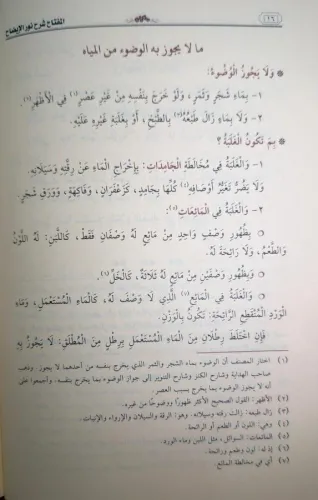 المفتاح شرح نور الإيضاح
(١٦)
ما لا يجوز به الوضوء من المياه
وَلَا يَجُوزُ الْوُضُوءُ:
١- بِمَاءِ شَجَرٍ وَثَمَرٍ، وَلَوْ خَرَجَ بِنَفْسِهِ مِنْ غَيْرِ عَصْرٍ(١) فِي الْأَظْهَرِ(٢).
٢- وَلَا بِمَاءٍ زَالَ طَبْعُهُ(٣) بِالطَّبْخِ، أَوْ بِغَلَبَةِ غَيْرِهِ عَلَيْهِ.
بِمَ تَكُونُ الْغَلَبَةُ ؟
١- وَالْغَلَبَةُ فِي مُخَالَطَةِ الْجَامِدَاتِ: بِإِخْرَاجِ الْمَاءِ عَنْ رِقَّتِهِ وَسَيَلَانِهِ.
وَلَا يَضُرُّ تَغَيُّرُ أَوْصَافِهِ(٤) كُلِّهَا بِجَامِدٍ، كَزَعْفَرَانٍ، وَفَاكِهَةٍ، وَوَرَقِ شَجَرٍ.
٢- وَالْغَلَبَةُ فِي الْمَائِعَاتِ(٥):
بِظُهُورِ وَصْفٍ وَاحِدٍ مِنْ مَائِعٍ لَهُ وَصْفَانِ فَقَطْ، كَاللَّبَنِ: لَهُ اللَّوْنُ
وَالطَّعْمُ، وَلَا رَائِحَةَ لَهُ.
وَبِظُهُورِ وَصْفَيْنِ مِنْ مَائِعٍ لَهُ ثَلَاثَةٌ، كَالْخَلِّ(٦).
وَالْغَلَبَةُ فِي الْمَائِعِ(٧) الَّذِي لَا وَصْفَ لَهُ، كَالْمَاءِ الْمُسْتَعْمَلِ، وَمَاءِ
الْوَرْدِ الْمُنْقَطِعِ الرَّائِحَةِ: تَكُونُ بِالْوَزْنِ.
فَإِنِ اخْتَلَطَ رِطْلَانِ مِنَ الْمَاءِ الْمُسْتَعْمَلِ بِرِطْلٍ مِنَ الْمُطْلَقِ: لَا يَجُوزُ بِهِ
(١) اختار المصنف أن الوضوء بماء الشجر والثمر الذي يخرج بنفسه من أحدهما لا يجوز. وذهب
صاحب الهداية وشارح الكنز وشارح التنوير إلى جواز الوضوء بما يخرج بنفسه. وأجمعوا على
أنه لا يجوز الوضوء بما يخرج بسبب العصر.
(٢) الأظهر: القول الصحيح الأكثر ظهورًا ووضوحًا من غيره.
(٣) زال طبعه: زالت رقته وسيلانه. وهو: الرقة والسيلان والإرواء والإنبات.
(٤) وهي: اللون أو الطعم أو الرائحة.
(٥) المائعات: السوائل، مثل اللبن وماء الورد.
(٦) إذ له: لون وطعم ورائحة.
(٧) أي في مخالطة المائع.